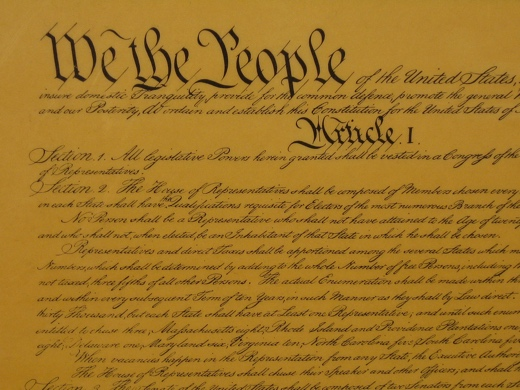 We the People of the United States,
insure domestic Tranquility, provide for the common defence, promote the general
and our Posterity, do ordain and establish this Constitution for the United States of
Article. I.
Section. 1. All legislative Powers herein granted shall be vested in a Congress of the
of Representatives.
Section. 2. The House of Representatives shall be composed of Members chosen every
in each State shall have the Qualifications requisite for Electors of the most numerous Branch of the
No Person shall be a Representative who shall not have attained to the Age of twenty
and who shall not, when elected, be an Inhabitant of that State in which he shall be chosen.
Representatives and direct Taxes shall be apportioned among the several States which
Numbers, which shall be determined by adding to the whole Number of free Persons, including
not taxed, three fifths of all other Persons. The actual Enumeration shall be made within
and within every subsequent Term of ten Years, in such Manner as they shall by Law direct.
thirty Thousand, but each State shall have at Least one Representative; and until such
entitled to chuse three, Massachusetts eight, Rhode Island and Providence Plantations one
eight, Delaware one, Maryland six, Virginia ten, North Carolina five, South Carolina
When vacancies happen in the Representation from any State, the Executive
The House of Representatives shall chuse their Speaker and other Officers; and shall
Section. The Senate of the United States shall be composed of two Senators from each